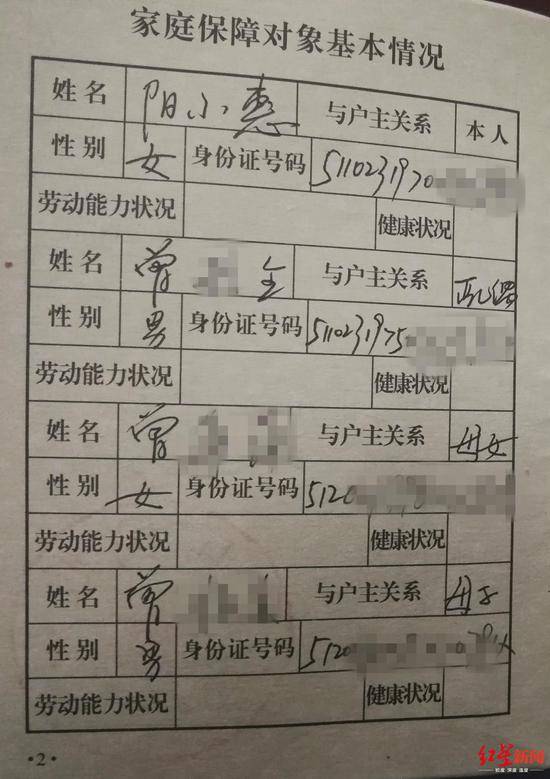 家庭保障对象基本情况
姓名 阳小惠 与户主关系 本人
性别 女 身份证号码 5110231970
劳动能力状况 健康状况
姓名 曾 全 与户主关系 配偶
性别 男 身份证号码 5110231975
劳动能力状况 健康状况
姓名 曾 与户主关系 母女
性别 女 身份证号码 5120
劳动能力状况 健康状况
姓名 曾 与户主关系 母子
性别 男 身份证号码 5120
劳动能力状况 健康状况
·2·
红星新闻